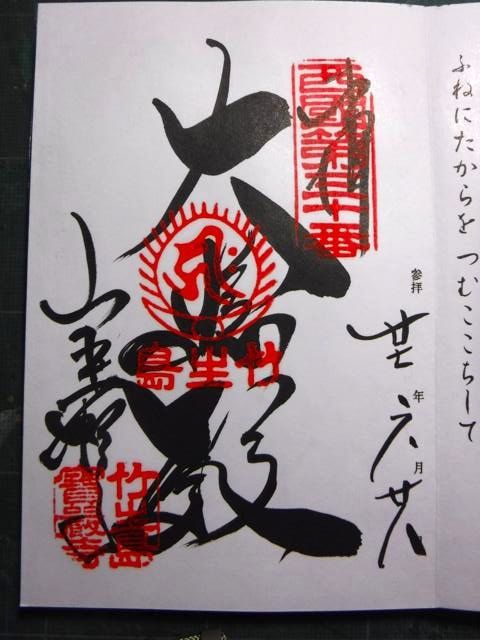 ふねにたからを つむここちして
西國第三十番
奉拝
大悲殿
竹生島
参拝 廿 年 六 月 廿八
竹生島
寶嚴寺